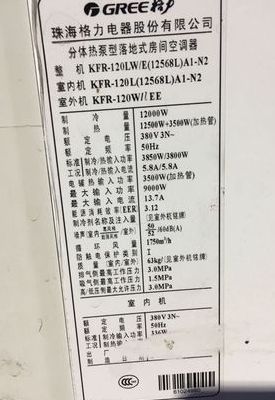 GREE 格力
珠海格力电器股份有限公司
分体热泵型落地式房间空调器
整 机 KFR-120LW/E(12568L)A1-N2
室内机 KFR-120L(12568L)A1-N2
室外机 KFR-120W/ EE
制 冷 量 12000W
制 热 量 12500W+3500W(加热管)
额 定 电 压 380V 3N~
额 定 频 率 50Hz
标准 制冷/热输入功率 3850W/3800W
制冷/热输入电流 5.8A/5.8A
电辅热输入功率 3500W(加热管)
最大输入功率 9000W
最大输入电流 13.7A
能源消耗效率(EER) 3.12
制冷剂名称及注入量 (见室外机铭牌)
噪声(室内 /室外) 50/52 /60dB(A)
循 环 风 量 1750m³/h
防触电保护类别 I
质量(室内/室外) 63kg/(见室外机铭牌)
排气侧最高工作压力 3.0MPa
吸气侧最高工作压力 1.5MPa
高/低压侧最大允许压力 3.0MPa
室 内 机
额 定 电 压 380V 3N~
额 定 频 率 50Hz
标准 制冷输入功率 336W
制热
出 厂
61024960